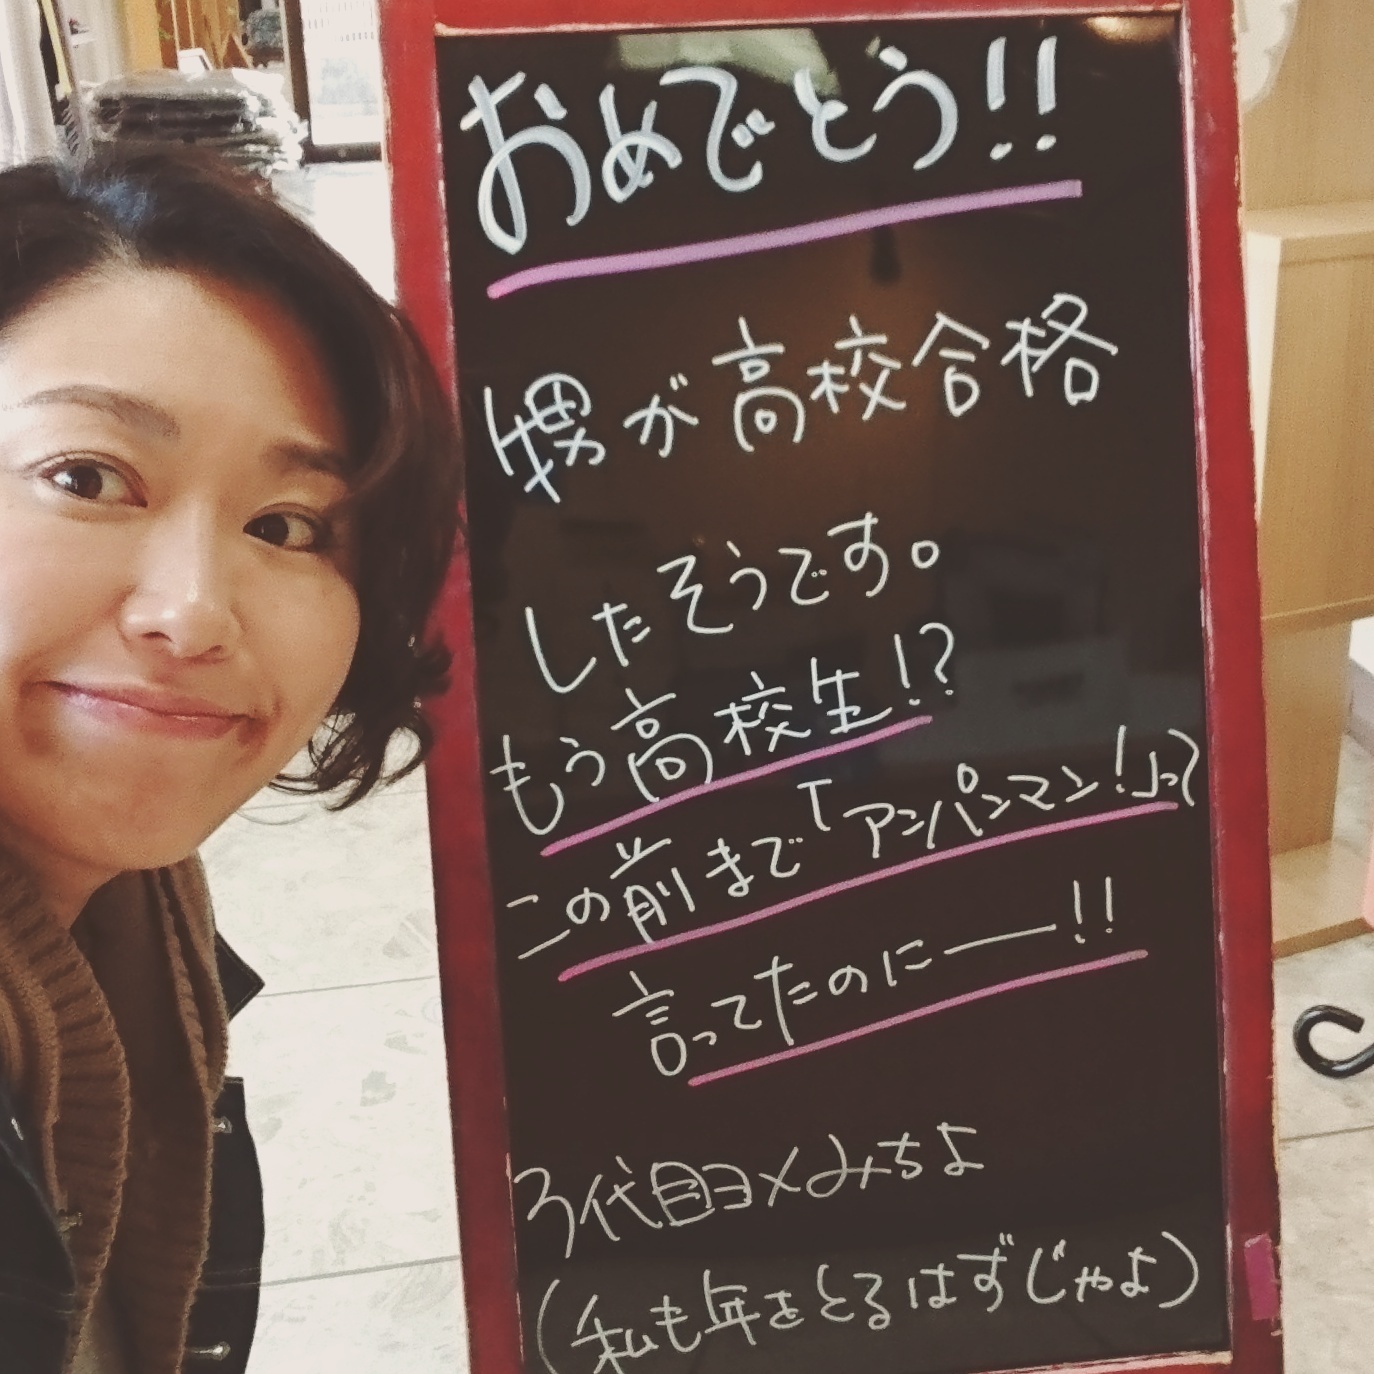 おめでとう!!
甥が高校合格
したそうです。
もう高校生!?
この前まで「アンパンマン!」って
言ってたのにー!!
3代目ヨメみちよ
(私も年をとるはずじゃよ)